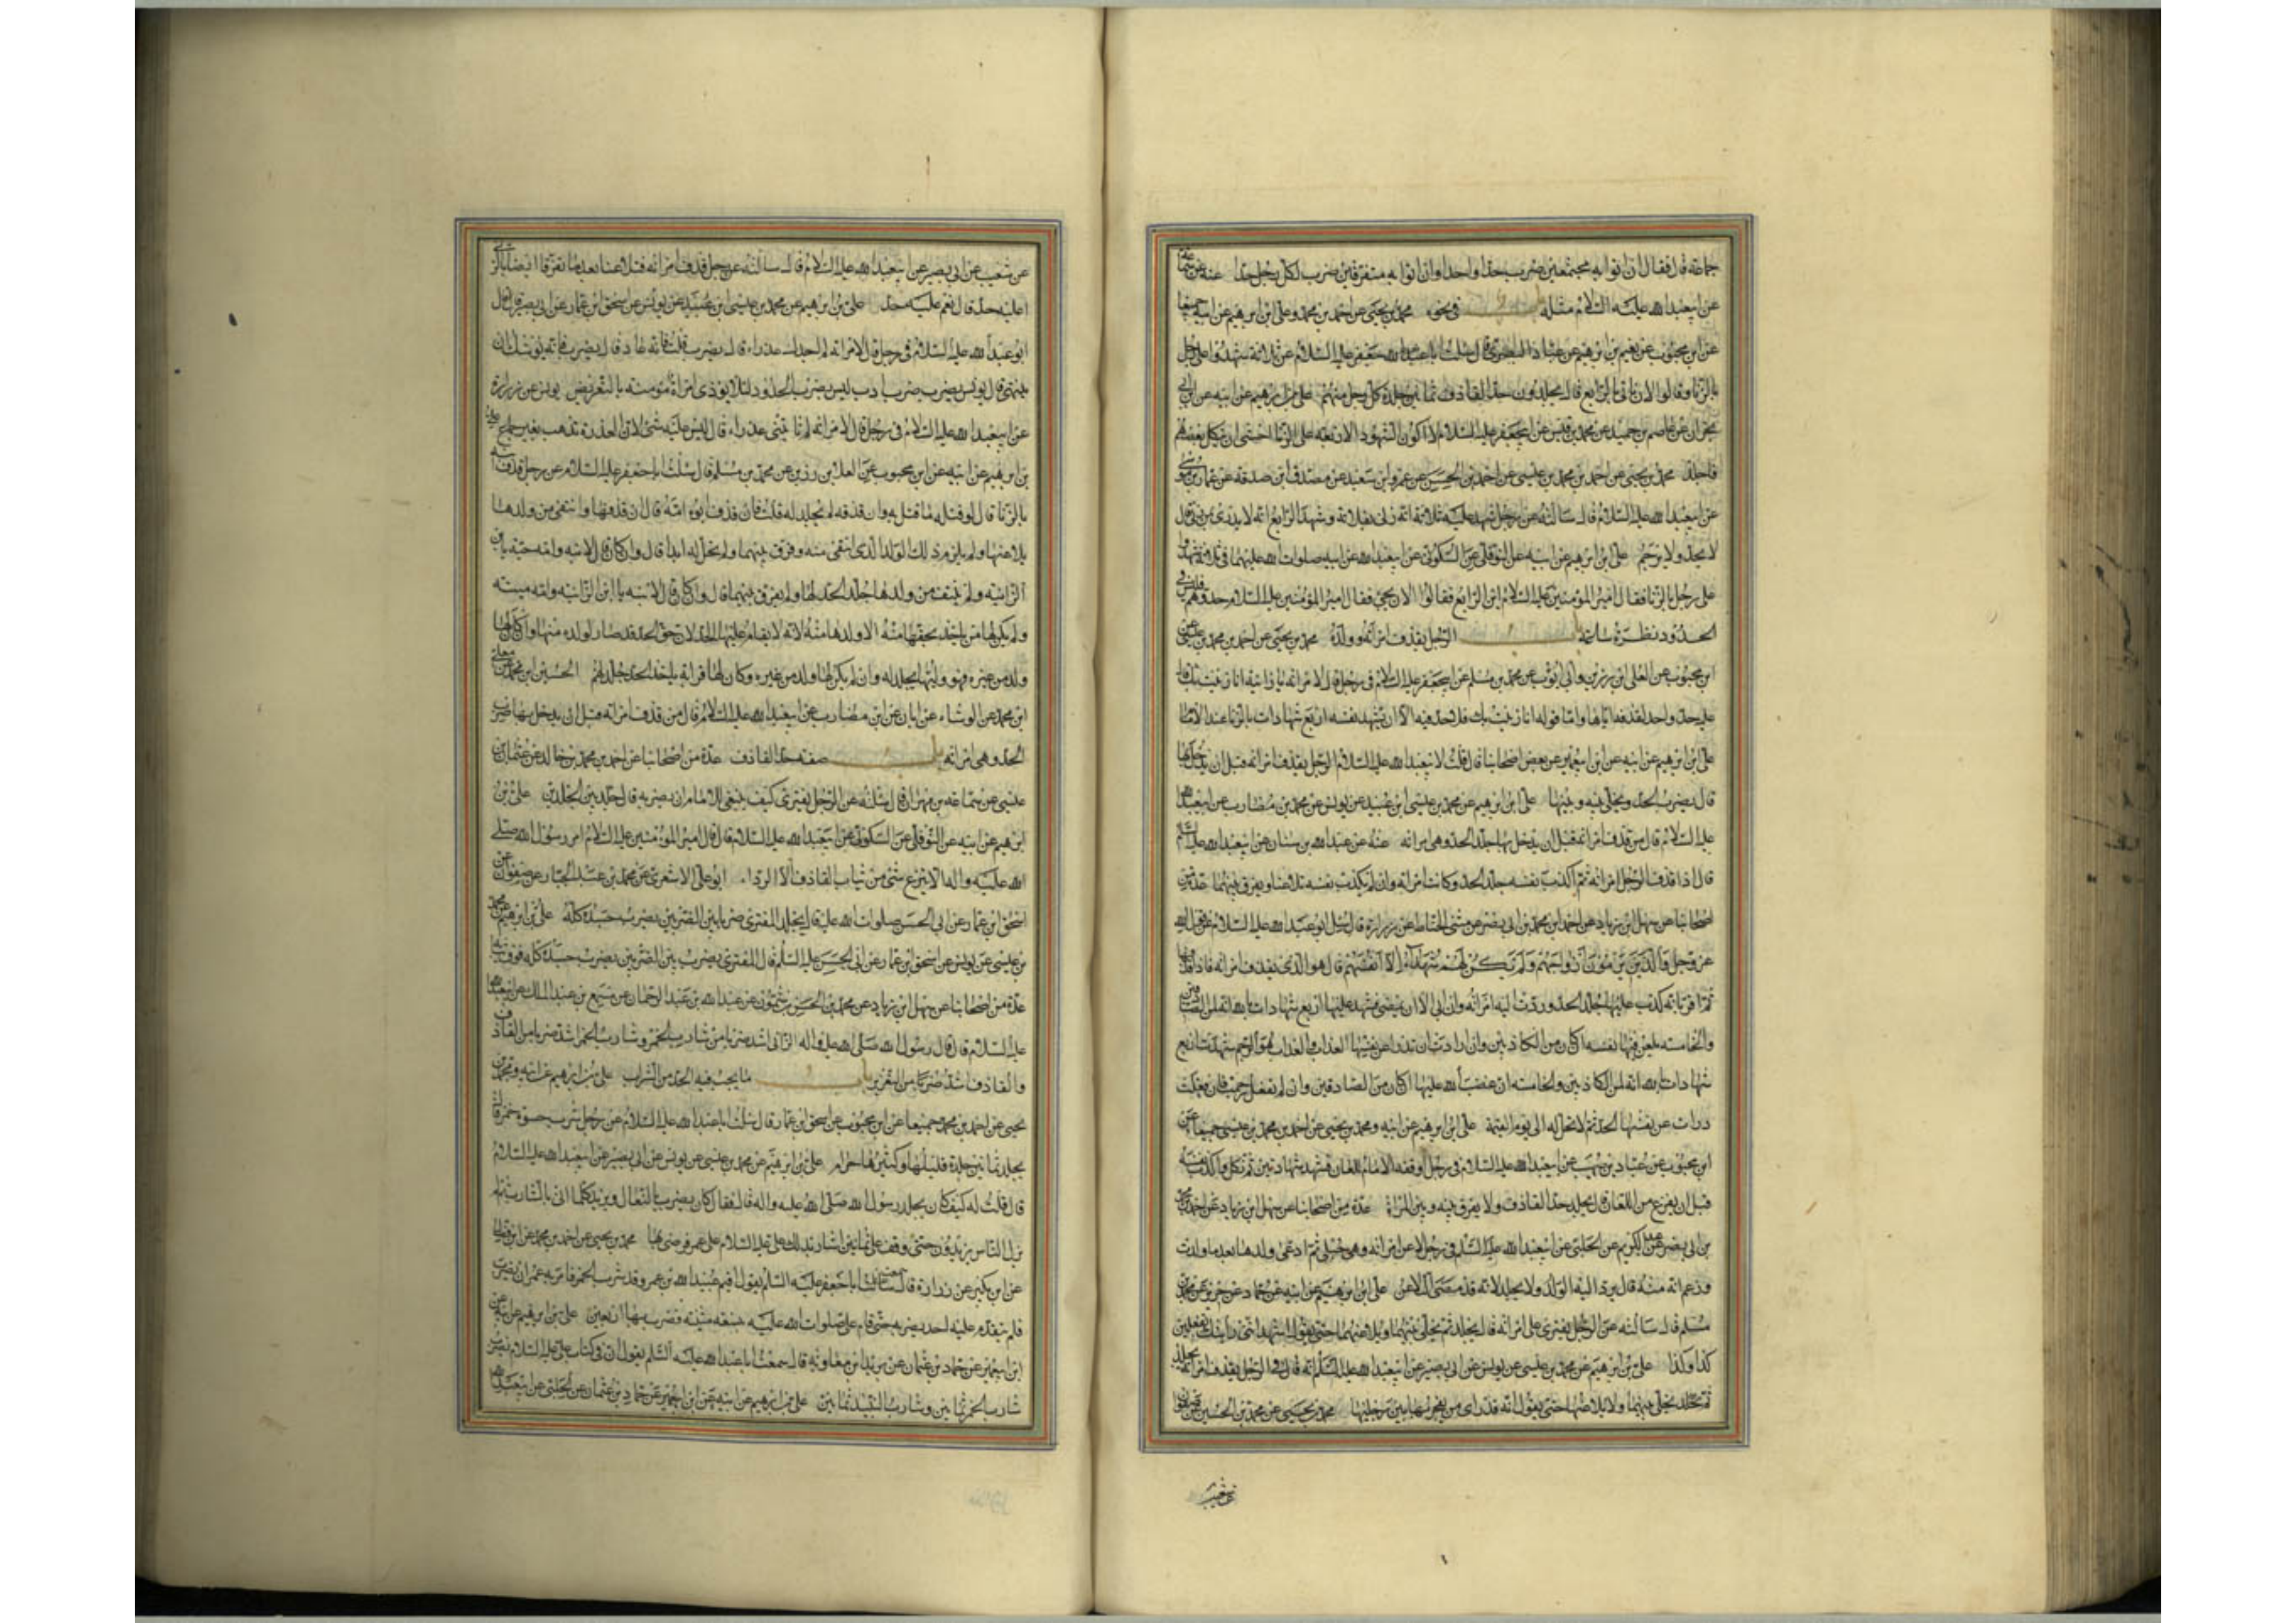 جماعة قال فقال ان اتوا به مجتمعين ضرب حدا واحدا وان اتوا به متفرقين ضرب لكل رجل حدا عنه عن سماعة
عن ابيعبدالله عليه السلام مثله باب في نحوه محمد بن يحيى عن احمد بن محمد وعلي ابن ابرهيم عن ابيه جميعا
عن ابن محبوب عن نعيم بن ابرهيم عن عباد البصري قال سئلت ابا عبدالله جعفر عليه السلام عن ثلاثة شهدوا على رجل
بالزنا وقالوا الان ناتي بالرابع قال يجلدون حد القاذف ثمانين جلدة كل رجل منهم علي بن ابرهيم عن ابيه عن ابن ابي
نجران عن عاصم بن حميد عن محمد بن قيس عن ابيجعفر عليه السلام لا اكون اول الشهود الاربعة على الزنا اخشى ان ينكل بعضهم
فاجلد محمد بن يحيى عن احمد بن محمد بن عيسى عن احمد بن الحسن عن عمرو ابن سعيد عن مصدق ابن صدقه عن عمار بن موسى
عن ابيعبدالله عليه السلام قال سالته عن رجل شهد عليه ثلاثة انه زنى بفلانة وشهد الرابع انه لا يدري بمن زنى قال
لا يحد ولا يرجم علي ابن ابرهيم عن ابيه عن النوفلي عن السكوني عن ابيعبدالله عن ابيه صلوات الله عليهما في ثلاثة شهدوا
على رجل بالزنا فقال امير المؤمنين عليه السلام اين الرابع فقالوا الان يجئ فقال امير المؤمنين عليه السلام حدوهم فليس في
الحدود نظرة ساعة باب الرجل يقذف امراته وولده محمد بن يحيى عن احمد بن محمد بن عيسى عن
ابن محبوب عن العلا ابن رزين وابي ايوب عن محمد بن مسلم عن ابيجعفر عليه السلام في رجل قال لامراته يا زانية انا زنيت بك قال
عليه حد واحد لقذفه اياها واما قوله انا زنيت بك فلا حد فيه الا ان يشهد على نفسه اربع شهادات بالزنا عند الامام
علي ابن ابرهيم عن ابيه عن ابن ابيعمير عن بعض اصحابنا قال قلت لابيعبدالله عليه السلام الرجل يقذف امراته قبل ان يدخل بها
قال يضرب الحد ويخلى بينه وبينها علي ابن ابرهيم عن محمد بن عيسى ابن عبيد عن يونس عن محمد بن مضارب عن ابيعبدالله
عليه السلام قال من قذف امراته قبل ان يدخل بها جلد الحد وهي امراته عنه عن عبدالله بن سنان عن ابيعبدالله عليه السلام
قال اذا قذف الرجل امراته ثم اكذب نفسه جلد الحد وكانت امراته وان لم يكذب نفسه تلاعنا ويفرق بينهما عدة من
اصحابنا عن سهل ابن زياد عن احمد ابن محمد بن ابي نصر عن مثنى الحناط عن زرارة قال سئل ابو عبدالله عليه السلام عن قول الله
عز وجل والذين يرمون ازواجهم ولم يكن لهم شهداء الا انفسهم قال هو الذي يقذف امراته فاذا قذفها
ثم اقر بانه كذب عليها جلد الحد وردت اليه امراته وان ابى الا ان يمضى فشهد عليها اربع شهادات بالله انه لمن الصادقين
والخامسة يلعن فيها نفسه ان كان من الكاذبين وان ارادت ان تدرا عن نفسها العذاب والعذاب هو الرجم شهدت اربع
شهادات بالله انه لمن الكاذبين والخامسة ان غضب الله عليها ان كان من الصادقين وان لم تفعل رجمت فان فعلت
درات عن نفسها الحد ثم لا تحل له الى يوم القيمة علي ابن ابرهيم عن ابيه ومحمد بن يحيى عن احمد بن محمد بن عيسى جميعا عن
ابن محبوب عن عباد بن صهيب عن ابيعبدالله عليه السلام في رجل اوقفه الامام للعان فشهد شهادتين ثم نكل واكذب نفسه
قبل ان يفرغ من اللعان قال يجلد حد القاذف ولا يفرق بينه وبين المراة عدة من اصحابنا عن سهل ابن زياد عن احمد بن محمد
بن ابي نصر عن عبد الكريم عن الحلبي عن ابيعبدالله عليه السلام في رجل لاعن امراته وهي حبلى ثم ادعى ولدها بعد ما ولدت
وزعم انه منه قال يرد اليه الولد ولا يجلد لانه قد مضى التلاعن علي ابن ابرهيم عن ابيه عن حماد عن حريز عن محمد بن
مسلم قال سالته عن الرجل يفترى على امراته قال يجلد ثم يخلى بينهما ولا يلاعنها حتى يقول اشهد انني رايتك تفعلين
كذا وكذا علي بن ابرهيم عن محمد بن عيسى عن يونس عن ابي بصير عن ابيعبدالله عليه السلام انه قال في الرجل يقذف امراته يجلد
ثم يخلى بينهما ولا يلاعنها حتى يقول انه قد راى من يفجر بها بين رجليها محمد بن يحيى عن محمد بن الحسين عن صفوان
عن شعيب
عن شعيب عن ابي بصير عن ابيعبدالله عليه السلام قال سالته عن رجل قذف امراته فتلاعنا بعد ما تفرقا ايضا بالزنا
اعليه حد قال نعم عليه حد علي بن ابرهيم عن محمد بن عيسى ابن عبيد عن يونس عن اسحق ابن عمار عن ابي بصير قال قال
ابو عبدالله عليه السلام في رجل قال لامراته لم اجدك عذراء قال يضرب قلت فانه عاد قال يضرب فانه يوشك ان
ينتهي قال يونس يضرب ضرب ادب ليس يضرب الحدود لئلا يؤذي امراة مؤمنة بالتعريض يونس عن زرارة
عن ابيعبدالله عليه السلام في رجل قال لامراته لم تاتني عذراء قال ليس عليه شئ لان العذرة تذهب بغير جماع علي
بن ابرهيم عن ابيه عن ابن محبوب عن العلا بن رزين عن محمد بن مسلم قال سئلت ابا جعفر عليه السلام عن رجل قذف ابنه
بالزنا قال لو قتله ما قتل به وان قذفه لم يجلد له قلت فان قذف ابوه امه قال ان قذفها وانتفى من ولدها
تلاعنا ولم يلزم ذلك الولد الذي انتفى منه وفرق بينهما ولم تحل له ابدا قال وان كان قال لابنه وامه حية يا بن
الزانية ولم ينتف من ولدها جلد الحد لها ولم يفرق بينهما قال وان كان قال لابنه يا ابن الزانية وامه ميتة
ولم يكن لها من ياخذ بحقها منه الا ولدها منه فانه لا يقام عليه الحد لان حق الحد قد صار لولده منها وان كان لها
ولد من غيره فهو وليها يجلد له وان لم يكن لها ولد من غيره وكان لها قرابة ياخذ الحد جلد لهم الحسين ابن محمد عن معلى
ابن محمد عن الوشاء عن ابان عن ابن مضارب عن ابيعبدالله عليه السلام قال من قذف امراته قبل ان يدخل بها ضرب
الحد وهي امراته باب صفة حد القاذف عدة من اصحابنا عن احمد بن محمد بن خالد عن عثمان بن
عيسى عن سماعه بن مهران قال سئلته عن الرجل يفترى كيف ينبغى للامام ان يضربه قال جلد بين الجلدين علي بن
ابرهيم عن ابيه عن النوفلي عن السكوني عن ابيعبدالله عليه السلام قال قال امير المؤمنين عليه السلام امر رسول الله صلى
الله عليه واله الا ينزع شئ من ثياب القاذف الا الرداء ابو علي الاشعري عن محمد بن عبد الجبار عن صفوان عن
اسحق ابن عمار عن ابي الحسن صلوات الله عليه قال يجلد المفترى ضربا بين الضربين يضرب جسده كله علي بن ابرهيم عن محمد
بن عيسى عن يونس عن اسحق ابن عمار عن ابي الحسن عليه السلم قال المفترى يضرب بين الضربين يضرب جسده كله فوق ثيابه
عدة من اصحابنا عن سهل ابن زياد عن محمد بن الحسن بن شمون عن عبدالله بن عبد الرحمان عن مسمع بن عبد الملك عن ابيعبدالله
عليه السلام قال قال رسول الله صلى الله عليه واله الزاني اشد ضربا من شارب الخمر وشارب الخمر اشد ضربا من القاذف
والقاذف اشد ضربا من التعزير باب ما يجب فيه الحد من الشراب علي بن ابرهيم عن ابيه ومحمد بن
يحيى عن احمد بن محمد جميعا عن ابن محبوب عن اسحق ابن عمار قال سئلت ابا عبدالله عليه السلام عن رجل شرب حسوة خمر قال
يجلد ثمانين جلدة قليلها وكثيرها حرام علي بن ابرهيم عن محمد بن عيسى عن يونس عن ابي بصير عن ابيعبدالله عليه السلام
قال قلت له كيف كان يجلد رسول الله صلى الله عليه واله قال فقال كان يضرب بالنعال ويزيد كلما اتى بالشارب ثم لم
يزل الناس يزيدون حتى وقف على ثمانين اشار بذلك علي عليه السلام على عمر فرضى بها محمد بن يحيى عن احمد بن محمد عن ابن فضال
عن ابن بكير عن زرارة قال سمعت ابا جعفر عليه السلم يقول اقيم عبيد الله بن عمر وقد شرب الخمر فامر به عمر ان يضرب
فلم يتقدم عليه احد يضربه حتى قام علي صلوات الله عليه بنسعة مثنية فضرب بها اربعين علي بن ابرهيم عن ابيه عن
ابن ابيعمير عن حماد بن عثمان عن بريد ابن معاويه قال سمعت ابا عبدالله عليه السلم يقول ان في كتاب علي عليه السلام يضرب
شارب الخمر ثمانين وشارب النبيذ ثمانين علي بن ابرهيم عن ابيه عن ابن ابيعمير عن حماد بن عثمان عن الحلبي عن ابيعبدالله